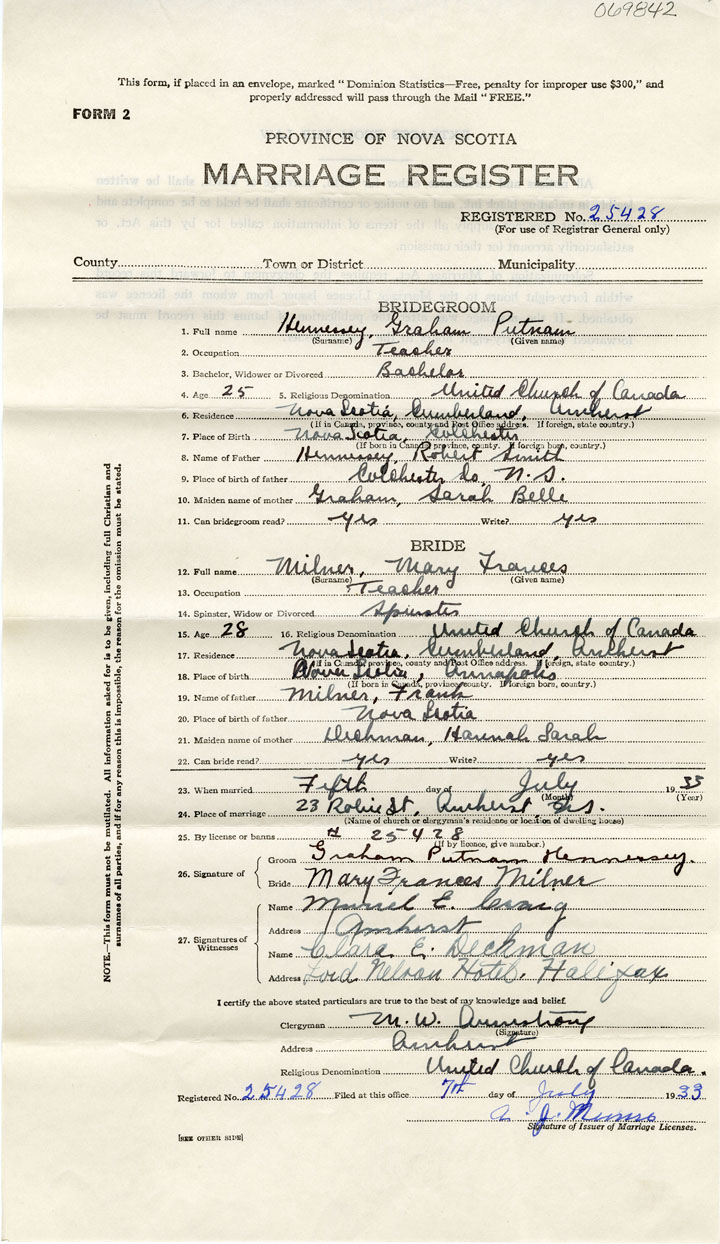 069842
This form, if placed in an envelope, marked "Dominion Statistics—Free, penalty for improper use $300," and
properly addressed will pass through the Mail "FREE."
FORM 2
PROVINCE OF NOVA SCOTIA
MARRIAGE REGISTER
REGISTERED No. 25428
(For use of Registrar General only)
County Town or District Municipality
BRIDEGROOM
1. Full name Hennessey, Graham Putnam
(Surname) (Given name)
2. Occupation Teacher
3. Bachelor, Widower or Divorced Bachelor
4. Age 25 5. Religious Denomination United Church of Canada
6. Residence Nova Scotia, Cumberland, Amherst
(If in Canada, province, county and Post Office address. If foreign, state country.)
7. Place of Birth Nova Scotia, Colchester
(If born in Canada, province, county. If foreign born, country.)
8. Name of Father Hennessey, Robert Smith
9. Place of birth of father Colchester Co, N.S.
10. Maiden name of mother Graham, Sarah Belle
11. Can bridegroom read? yes Write? yes
BRIDE
12. Full name Milner, Mary Frances
(Surname) (Given name)
13. Occupation Teacher
14. Spinster, Widow or Divorced Spinster
15. Age 28 16. Religious Denomination United Church of Canada
17. Residence Nova Scotia, Cumberland, Amherst
(If in Canada, province, county and Post Office address. If foreign, state country.)
18. Place of birth Nova Scotia, Annapolis
(If born in Canada, province, county. If foreign born, country.)
19. Name of father Milner, Frank
20. Place of birth of father Nova Scotia
21. Maiden name of mother Hannah Sarah
22. Can bride read? yes Write? yes
23. When married Fifth day of July 1933
(Month) (Year)
24. Place of marriage 23 Robie St, Amherst, N.S.
(Name of church or clergyman's residence or location of dwelling house)
25. By license or banns # 25428
(If by licence, give number.)
26. Signature of
Groom Graham Putnam Hennessey.
Bride Mary Frances Milner
27. Signatures of Witnesses
Name Muriel E. Craig
Address Amherst
Name Clara E. Deckman
Address Lord Nelson Hotel, Halifax
I certify the above stated particulars are true to the best of my knowledge and belief.
Clergyman M. W. Armstrong
(Signature)
Address Amherst
Religious Denomination United Church of Canada.
Registered No. 25428 Filed at this office 7th day of July 1933
J. Munro
Signature of Issuer of Marriage Licenses.
[SEE OTHER SIDE]
NOTE.—This form must not be mutilated. All information asked for is to be given, including full Christian and
surnames of all parties, and if for any reason this is impossible, the reason for the omission must be stated.